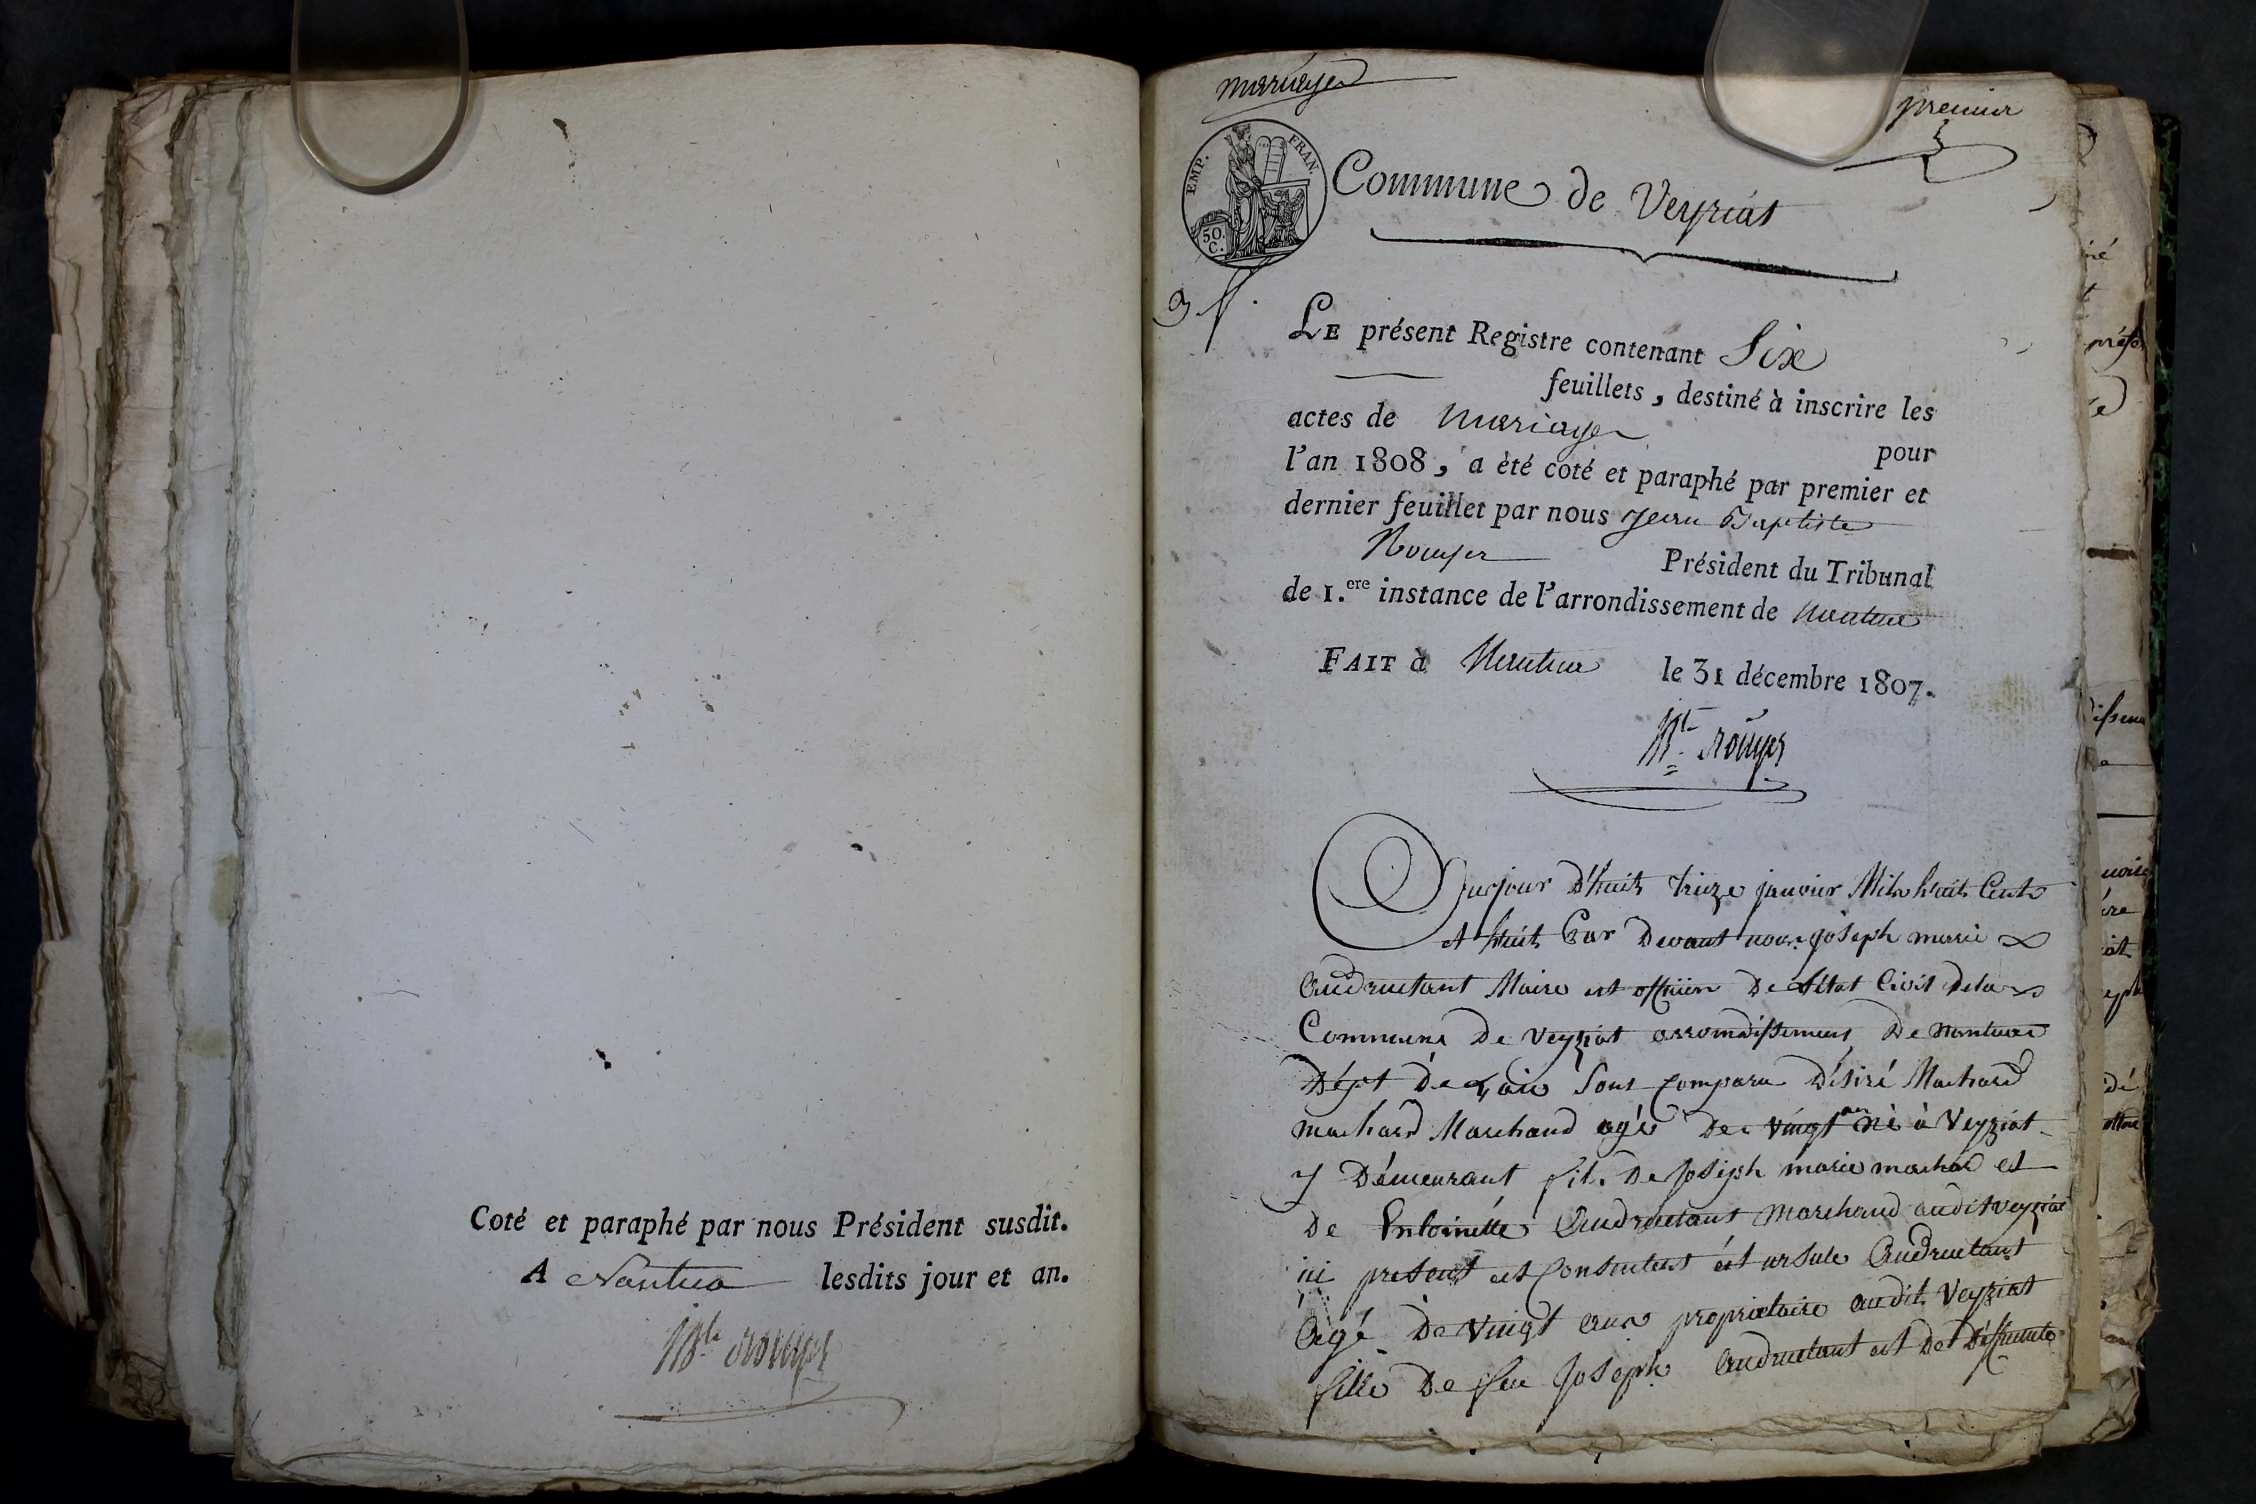 Coté et paraphé par nous Président susdit.
A Nantua lesdits jour et an.
Bte Rouyer
mariages
premier
EMP. FRAN.
50.
C.
Commune de Veyriat
LE présent Registre contenant Six
feuillets, destiné à inscrire les
actes de mariages pour
l'an 1808, a èté coté et paraphé par premier et
dernier feuillet par nous Jean Baptiste
Rouyer Président du Tribunal
de 1.ere instance de l'arrondissement de Nantua
FAIT à Nantua le 31 décembre 1807.
Bte Rouyer
aujour D'huit treize janvier Mil huit Cents
et huit Par Devant nous joseph marie
Maire est officier De L'état Civil Dela
Commune De Veyziat arrondissement De Nantua
Dépt De L'ain Sont Comparu Désiré Machard
machard Marchand agés De vingt ans né à Veyziat
y Démeurant fils De joseph marie machard et
De Entoinette marchand audit veyziat
ici présent est Consentent ét ursule
agé De vingt ans propriétaire audit Veyziat
fille De feu Joseph est De Deffunte